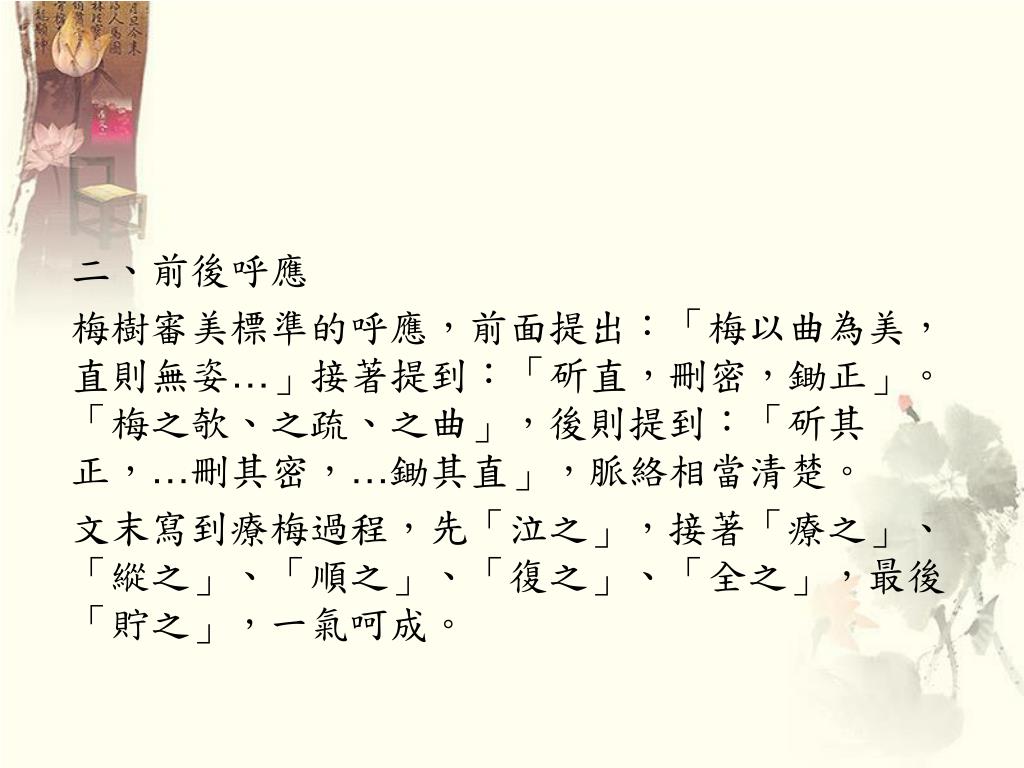 二、前後呼應
梅樹審美標準的呼應，前面提出：「梅以曲為美，
直則無姿…」接著提到：「斫直，刪密，鋤正」。
「梅之欹、之疏、之曲」，後則提到：「斫其
正，…刪其密，…鋤其直」，脈絡相當清楚。
文末寫到療梅過程，先「泣之」，接著「療之」、
「縱之」、「順之」、「復之」、「全之」，最後
「貯之」，一氣呵成。